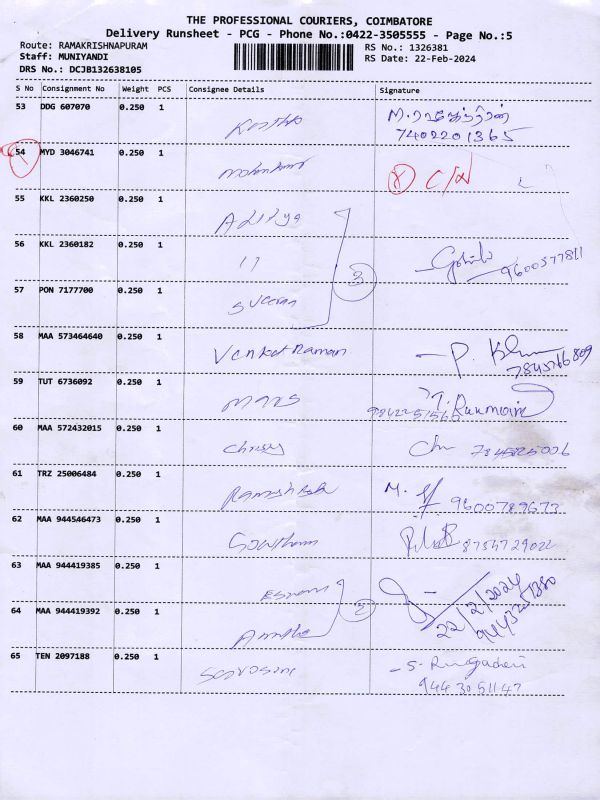 THE PROFESSIONAL COURIERS, COIMBATORE
Delivery Runsheet - PCG - Phone No.:0422-3505555 - Page No.:5
Route: RAMAKRISHNAPURAM
RS No.: 1326381
Staff: MUNIYANDI
RS Date: 22-Feb-2024
DRS No.: DCJB132638105
S No Consignment No Weight PCS Consignee Details Signature
53 DDG 607070 0.250 1
7402201365
54 MYD 3046741 0.250 1
55 KKL 2360250 0.250 1 Aditya
56 KKL 2360182 0.250 1 11
9600577811
3
57 PON 7177700 0.250 1
58 MAA 573464640 0.250 1 Venket Raman P.
7845766809
59 TUT 6736092 0.250 1
60 MAA 572432015 0.250 1 Christy
61 TRZ 25006484 0.250 1 M.
9600789673
62 MAA 944546473 0.250 1 Gowtham
8754729022
63 MAA 944419385 0.250 1 Eswari
22/2/2024
2
64 MAA 944419392 0.250 1
65 TEN 2097188 0.250 1
9443051147